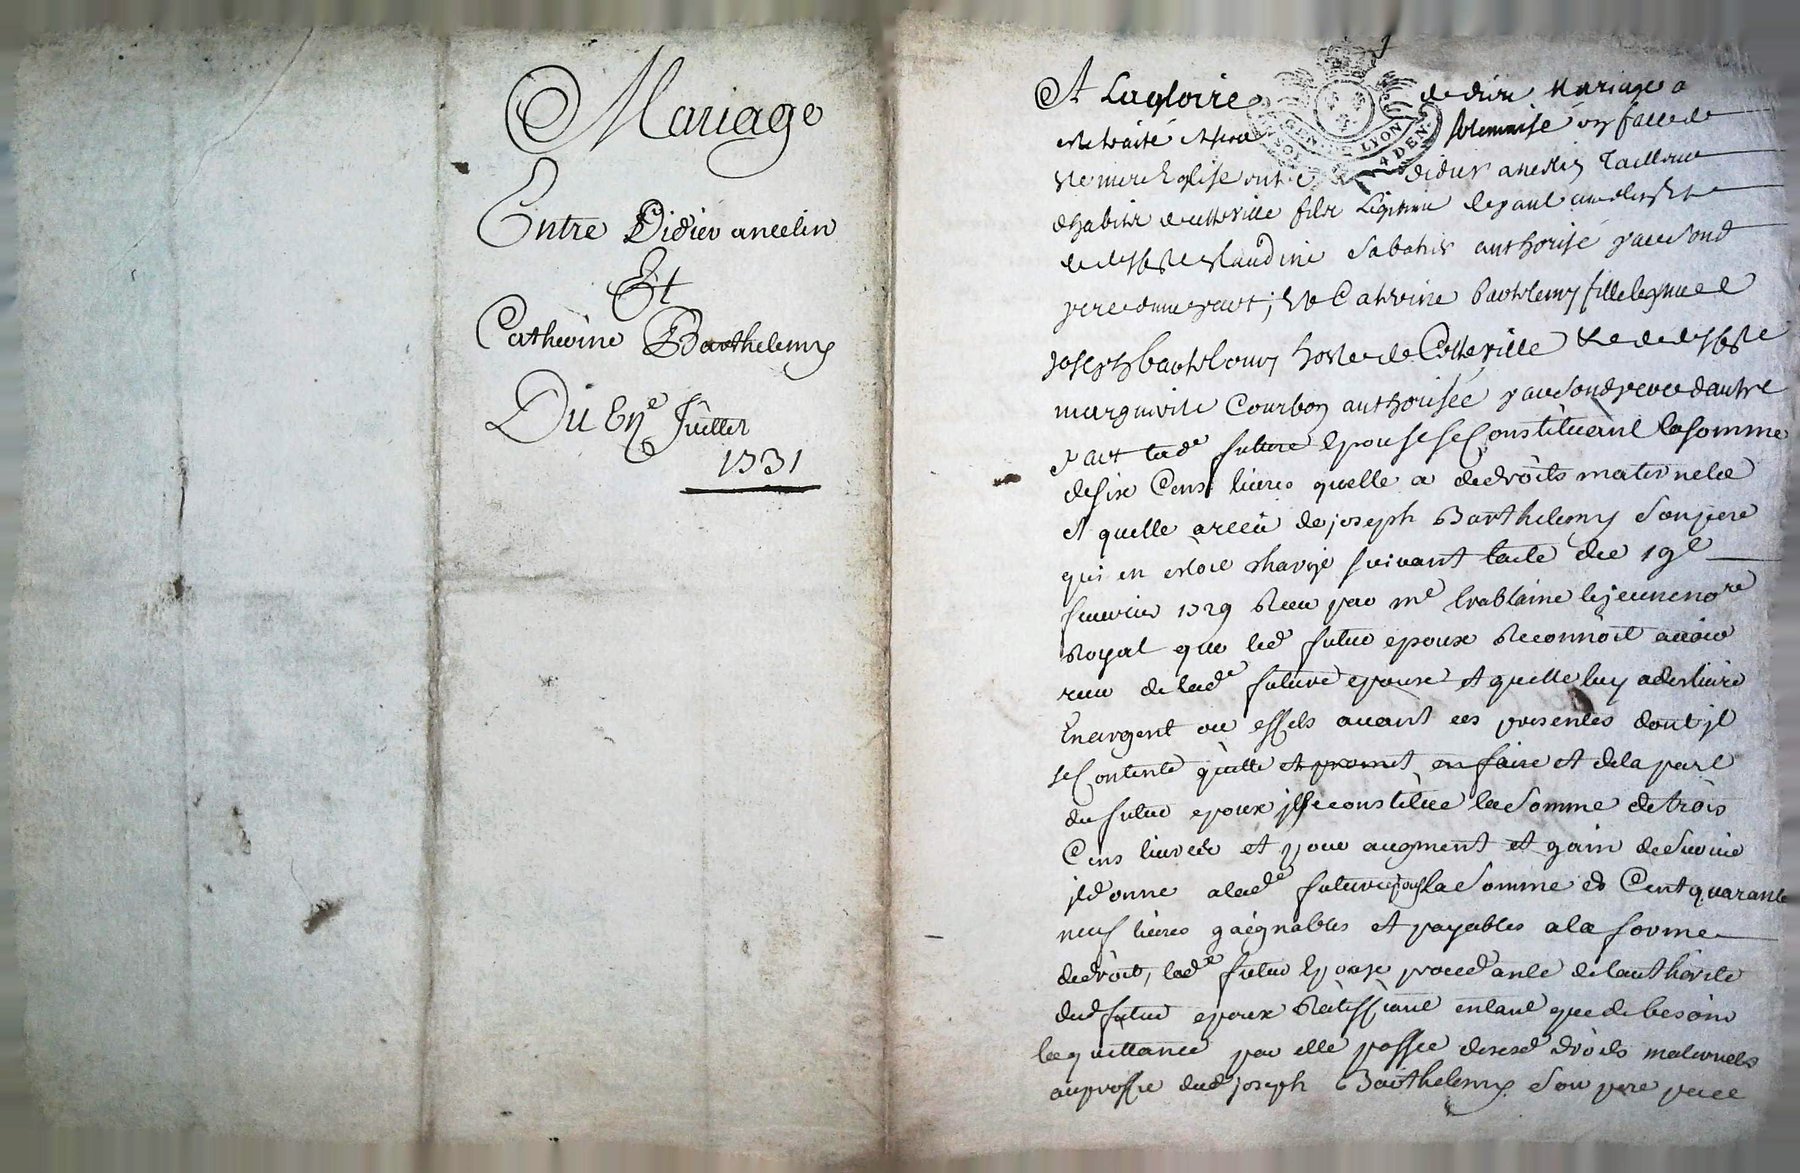 Mariage
Entre Didier ancelin
Et
Catherine Barthelemy
Du 6e Juillet
1731
A La gloire de dieu Mariage a
este traité et sera solemnisé en face de
Ste mere Eglise entre didier ancelin Tailleur
dhabits de cette ville fils Légitime de paul ancelin
et de claudine Sabatier authorisé par sond
pere dune part; Et Catherine Barthelemy fille legitime de
Joseph barthelemy hoste de Cette ville Et de
marguerite Courbon authorisée par sond pere dautre
part lade future Epouse se Constituant la somme
de six Cens livres quelle a de droits maternels
et quelle a reçu de joseph Barthelemy son pere
qui en estoit chargé suivant lacte du 19e
feuvrier 1729 Receu par me le jeune nore
Royal que led futur epoux Reconnoit avoir
receu de lade future epouse et quelle luy a deslivré
En argent ou effets avant ces presentes dont il
se Contente quitte et promet en faire et de la part
du futur epoux il se constitue la somme de trois
Cens livres et pour augment et gain de survie
il donne a lade future epouse la somme de Cent quarante
neuf livres gaignables et payables a la forme
de droit, lade future Epouse procedante de lauthorité
dud futur epoux Ratiffiant entant que de besoin
la quittance par elle passée desesd droits maternels
au proffit dud joseph Barthelemy son pere
GEN. DE LYON
4 DEN.